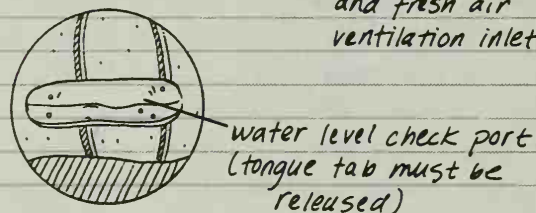 and fresh air
ventilation inlet
water level check port
(tongue tab must be
released)